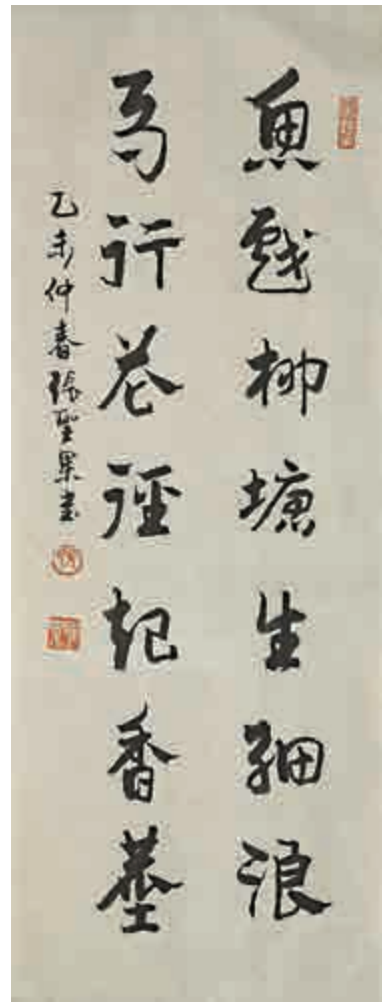 魚戲柳塘生細浪
馬行花徑起香塵
乙未仲春張聖果書